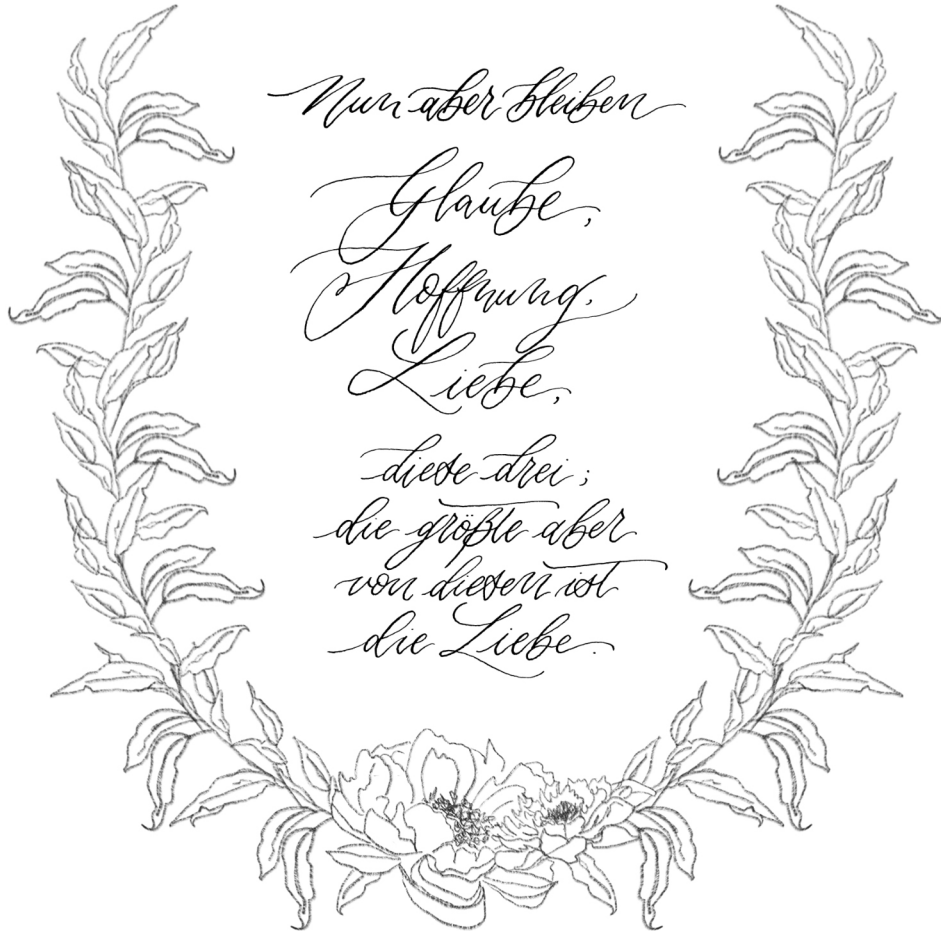 Nun aber bleiben
Glaube,
Hoffnung,
Liebe,
diese drei;
die größte aber
von diesen ist
die Liebe.